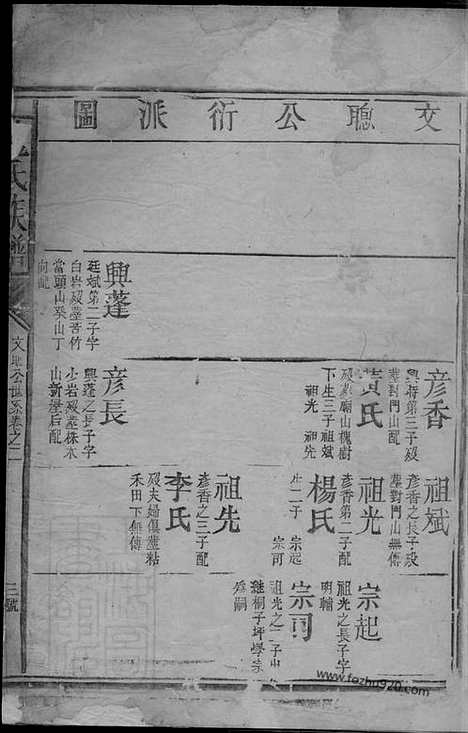 文聰公衍派圖
彥香
興將第三子歿
塟對門山配
黃氏
歿塟廟山槐樹
下生三子祖斌
祖光 祖先
興蓬
廷斌第二子字
白岩歿塟苦竹
當頭山癸山丁
向配
彥長
興蓬之長子字
少岩歿塟株木
山新屋后配
祖斌
彥香之長子歿
塟對門山無傳
祖光
彥香第二子配
楊氏
生二子 宗起
宗可
祖先
彥香之三子配
李氏
歿夫婦俱塟粘
禾田下無傳
宗起
祖光之長子字
明輔
宗可
祖光之二子出
継桐子坪學
為嗣
氏族譜
文聰公世系卷之二
三號
www.fozhu920.com